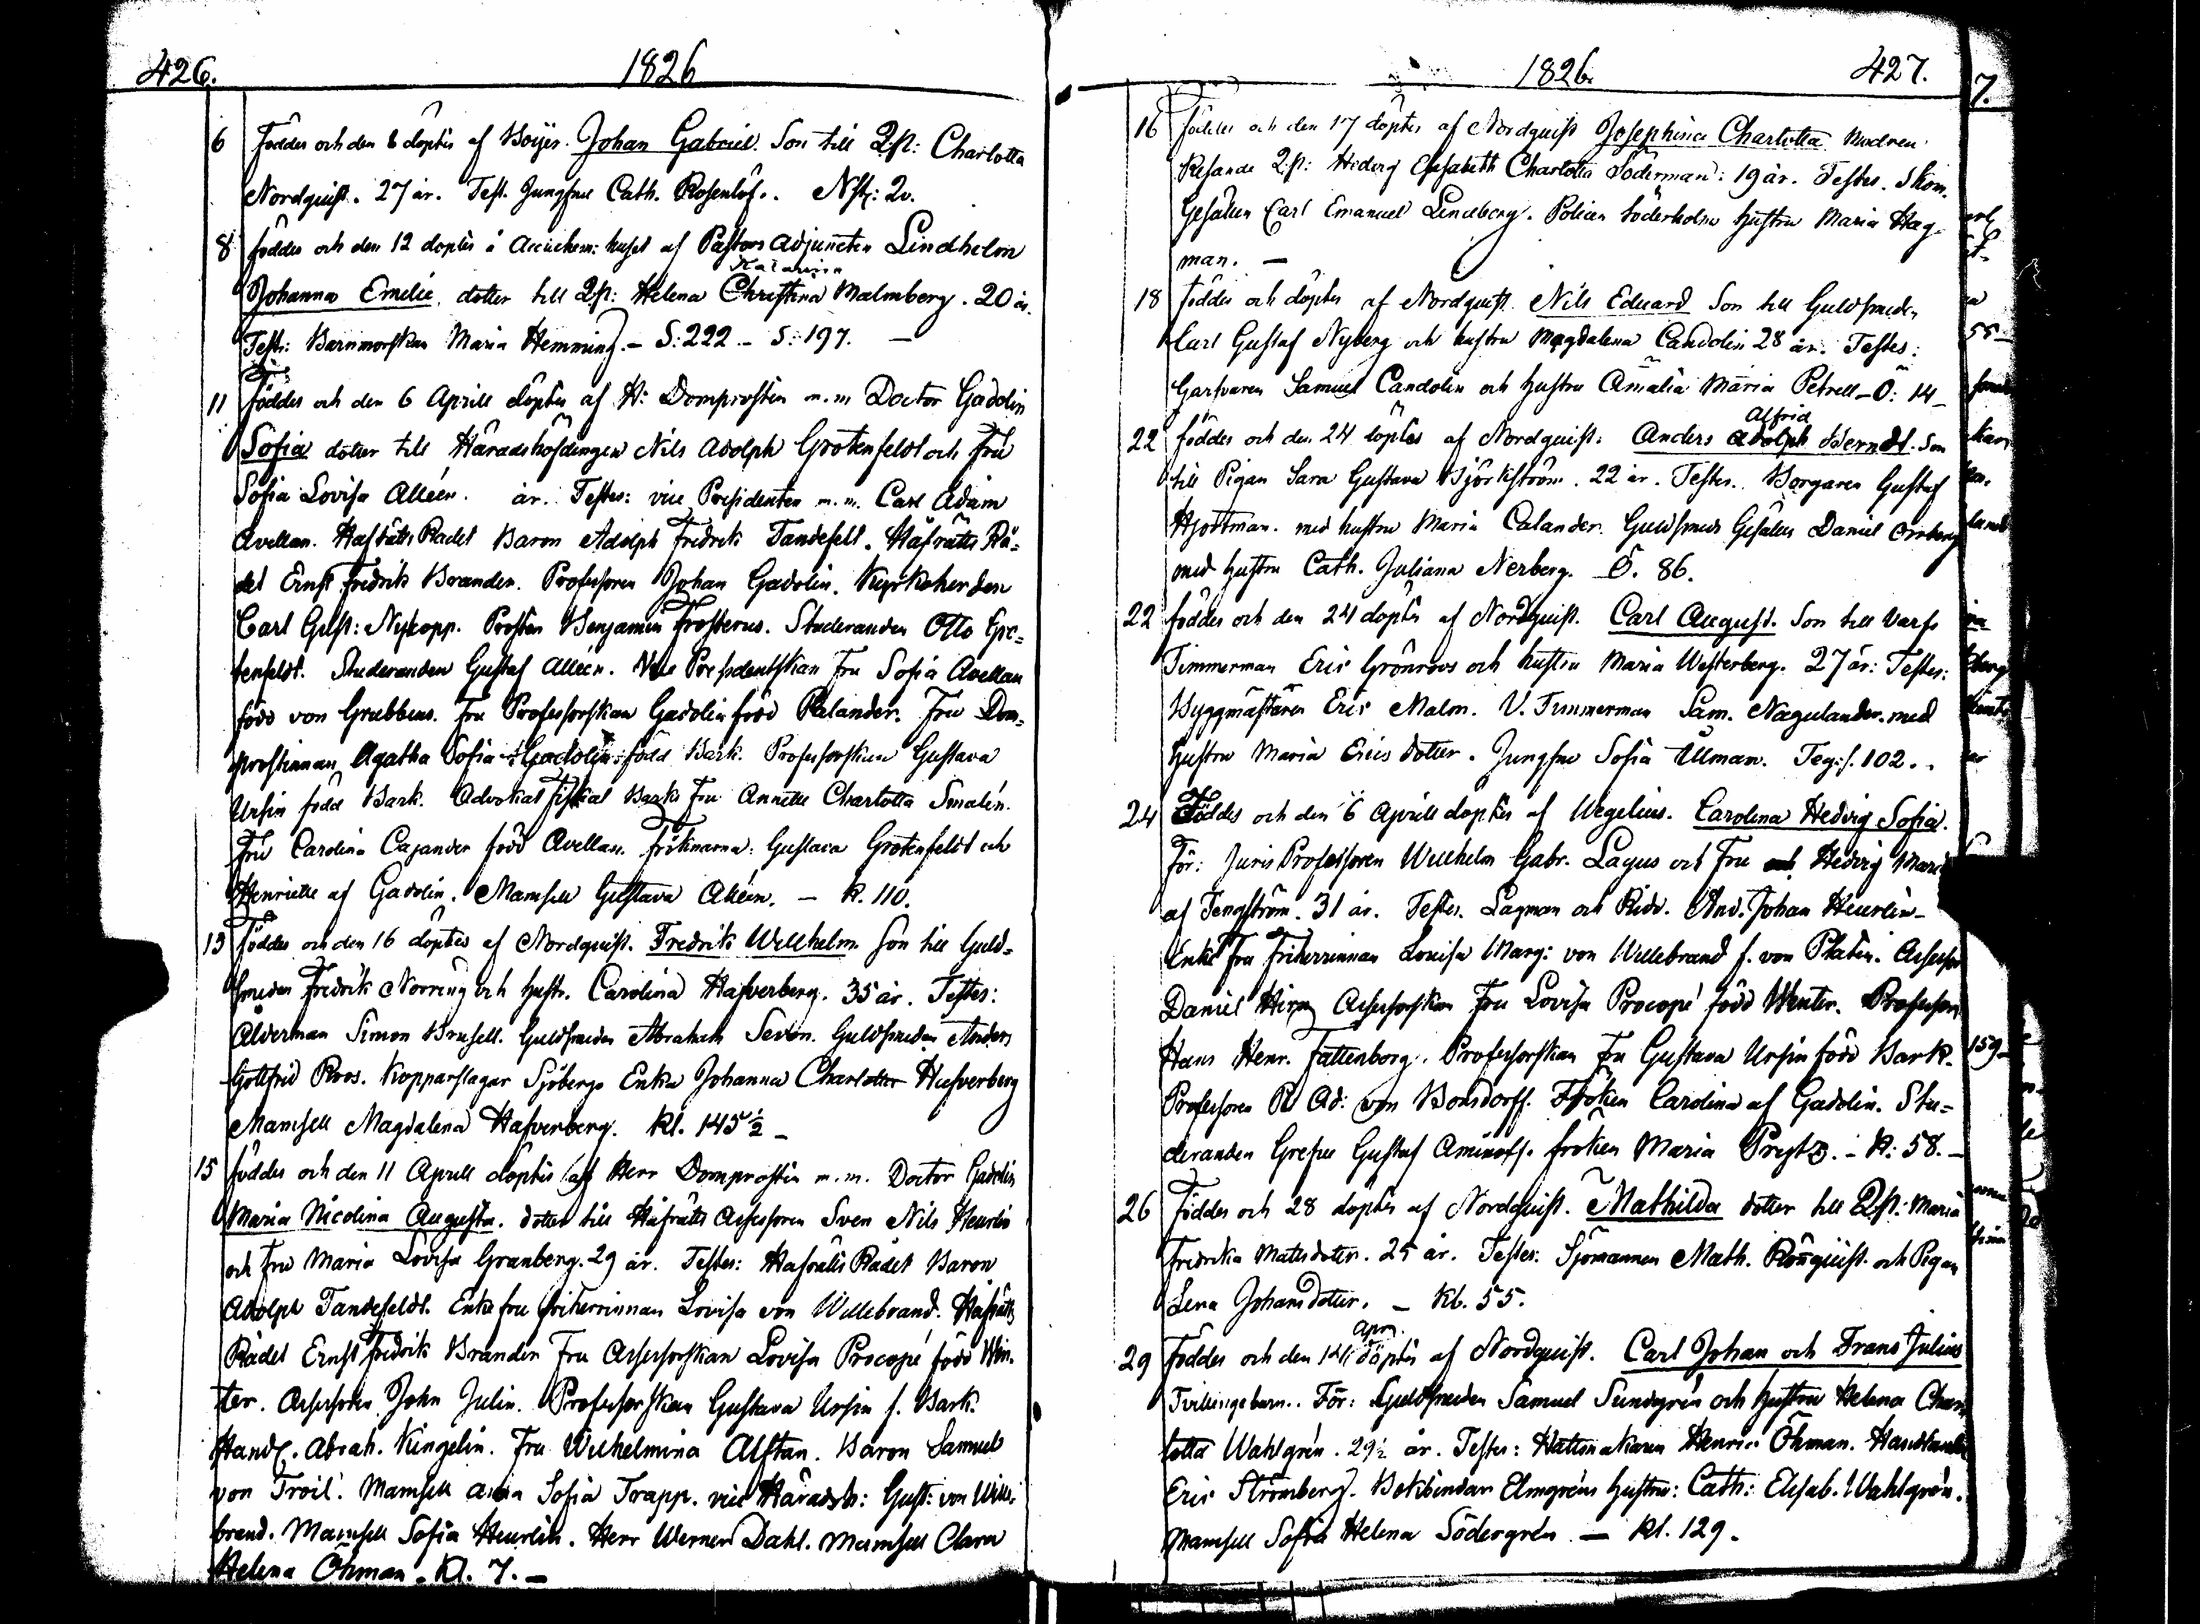 426.
1826
6 Föddes och den 8 döptes af Boijer. Johan Gabriel. Son till Q.p: Charlotta
Nordquist. 27 år. Test. Jungfru Cath. Rosenlöf. Nst: 20.
8 föddes och den 12 döptes å Accuchem: huset af Pastors Adjuncten Lindholm
Katarina
Johanna Emelie, dotter till Q.p: Helena Christina Malmberg. 20 år.
Test: Barnmorskan Maria Hemming. – S: 222 – S: 197. –
11 föddes och den 6 Aprill döptes af H: Domprosten m.m Doctor Gadolin
Sofia dotter till Häradshöfdingen Nils Adolph Grotenfeldt och Fru
Sofia Lovisa Alléen. år. Testes: vice Presidenten m.m. Carl Adam
Avellan. HofRätts Rådet Baron Adolph Fredrik Tandefelt. Håfrätts Rå-
det Ernst Fredrik Brander. Professoren Johan Gadolin. Kyrkoherden
Carl Gust: Nykopp. Prosten Benjamin Frosterus. Studeranden Otto Gro-
tenfeldt. Studeranden Gustaf Alléen. Vice Presidentskan Fru Sofia Avellan
född von Grubbens. Fru Professorskan Gadolin född Palander. Fru Dom-
prostinnan Agatha Sofia Gadolin född Bark. Professorskan Gustava
Ursin född Bark. Advokat fiskal Barks Fru Annette Charlotta Smalén.
Fru Carolina Cajander född Avellan. fröknarna: Gustava Grotenfeldt och
Henriette af Gadolin. Mamsell Gustava Alléen. – K. 110.
13 föddes och den 16 döptes af Nordquist. Fredrik Willhelm Son till Guld-
smeden Fredrik Norring och hustr. Carolina Hafverberg. 35 år. Testes:
Ålderman Simon Brusell. Guldsmeden Abraham Sevon. Guldsmeden Anders
Gottfrid Roos. Kopparslagar Sjöbergs Enka Johanna Charlotta Hafverberg
Mamsell Magdalena Hafverberg. Kl. 145 ½ –
15 föddes och den 11 Aprill döptes af Herr Domprosten m.m. Doctor Gadolin
Maria Nicolina Augusta. dotter till Håfrätts Assessoren Sven Nils Heurlin
och Fru Maria Lovisa Granberg. 29 år. Testes: Hafrätts Rådet Baron
Adolph Tandefeldt. Enke fru friherrinnan Lovisa von Willebrand. Hafrätts
Rådet Ernst Fredrik Brander Fru Assessorskan Lovisa Procopé född Win-
ter. Assessoren John Julin. Professorskan Gustava Ursin f. Bark.
Handl. Abrah. Kingelin. Fru Wilhelmina Alftan. Baron Samuel
von Troil. Mamsell Anna Sofia Trapp. vice Häradsh: Gust: von Wille-
brand. Mamsell Sofia Heurlin. Herr Werner Dahl. Mamsell Clara
Helena Öhman. Kl. 7. –
1826.
427.
16 föddes och den 17 döptes af Nordquist Josephina Charlotta. Modren
Resande Q.p: Hedvig Elisabeth Charlotta Söderman: 19 år. Testes. Skom.
Gesällen Carl Emanuel Lindberg. Policen Söderholms hustru Maria Hag-
man. –
18 föddes och döptes af Nordquist. Nils Eduard Son till Guldsmeden
Carl Gustaf Nyberg och hustru Magdalena Candolin 28 år. Testes:
Garfvaren Samuel Candolin och hustru Amalia Maria Petrell – Ö: 14 –
Alfrid
22 föddes och den 24 döptes af Nordquist: Anders Adolph Berndt. Son
till Pigan Sara Gustava Björkström. 22 år. Testes. Borgaren Gustaf
Hjortman. med hustru Maria Calander. Guldsmeds Gesällen Daniel
med hustru Cath. Juliana Nerberg. Ö. 86.
22 föddes och den 24 döptes af Nordquist. Carl August. Son till Varfs
Timmerman Eric Grönroos och hustru Maria Westerberg. 27 år: Testes:
Byggmästaren Eric Malm. V. Timmerman Sam. Nagulander. med
hustru Maria Erics dotter. Jungfru Sofia Ullman. Teg:s. 102..
24 Föddes och den 6 Aprill döptes af Wegelius. Carolina Hedvig Sofia.
För: Juris Professoren Willhelm Gabr. Lagus och Fru Hedvig Maria
af Tengström. 31 år. Testes. Lagman och Ridd. And. Johan Heurlin –
Enke Fru Friherrinnan Lovisa Marg: von Willebrand f. von Platen. Assessor
Daniel Hirn Assessorskan Fru Lovisa Procopé född Winter. Professor
Hans Henr. Fattenborg. Professorskan Fru Gustava Ursin född Bark.
Professoren P. Ad: von Bonsdorff. Fröken Carolina af Gadolin. Stu-
deranden Grefve Gustaf Aminoff. fröken Maria Prytz. – K: 58. –
26 Föddes och 28 döptes af Nordquist. Mathilda dotter till Q.p: Maria
Fredrika Mattsdotter. 25 år. Testes: Sjömannen Math. Rönquist. och Pigan
Lena Johansdotter. – Kl. 55.
Apr.
29 föddes och den 14 döptes af Nordquist. Carl Johan och Frans Julius
Tvillingebarn.. För: Guldsmeden Samuel Sundgrén och hustru Helena Char-
lotta Wahlgrén. 29½ år. Testes: Hattmakaren Henric Öhman. Handlanden
Eric Strömberg. Bokbindar Elmgréns hustru: Cath: Elisab. Wahlgrén.
Mamsell Sofia Helena Södergrén. – Kl. 129.
7.
55
159